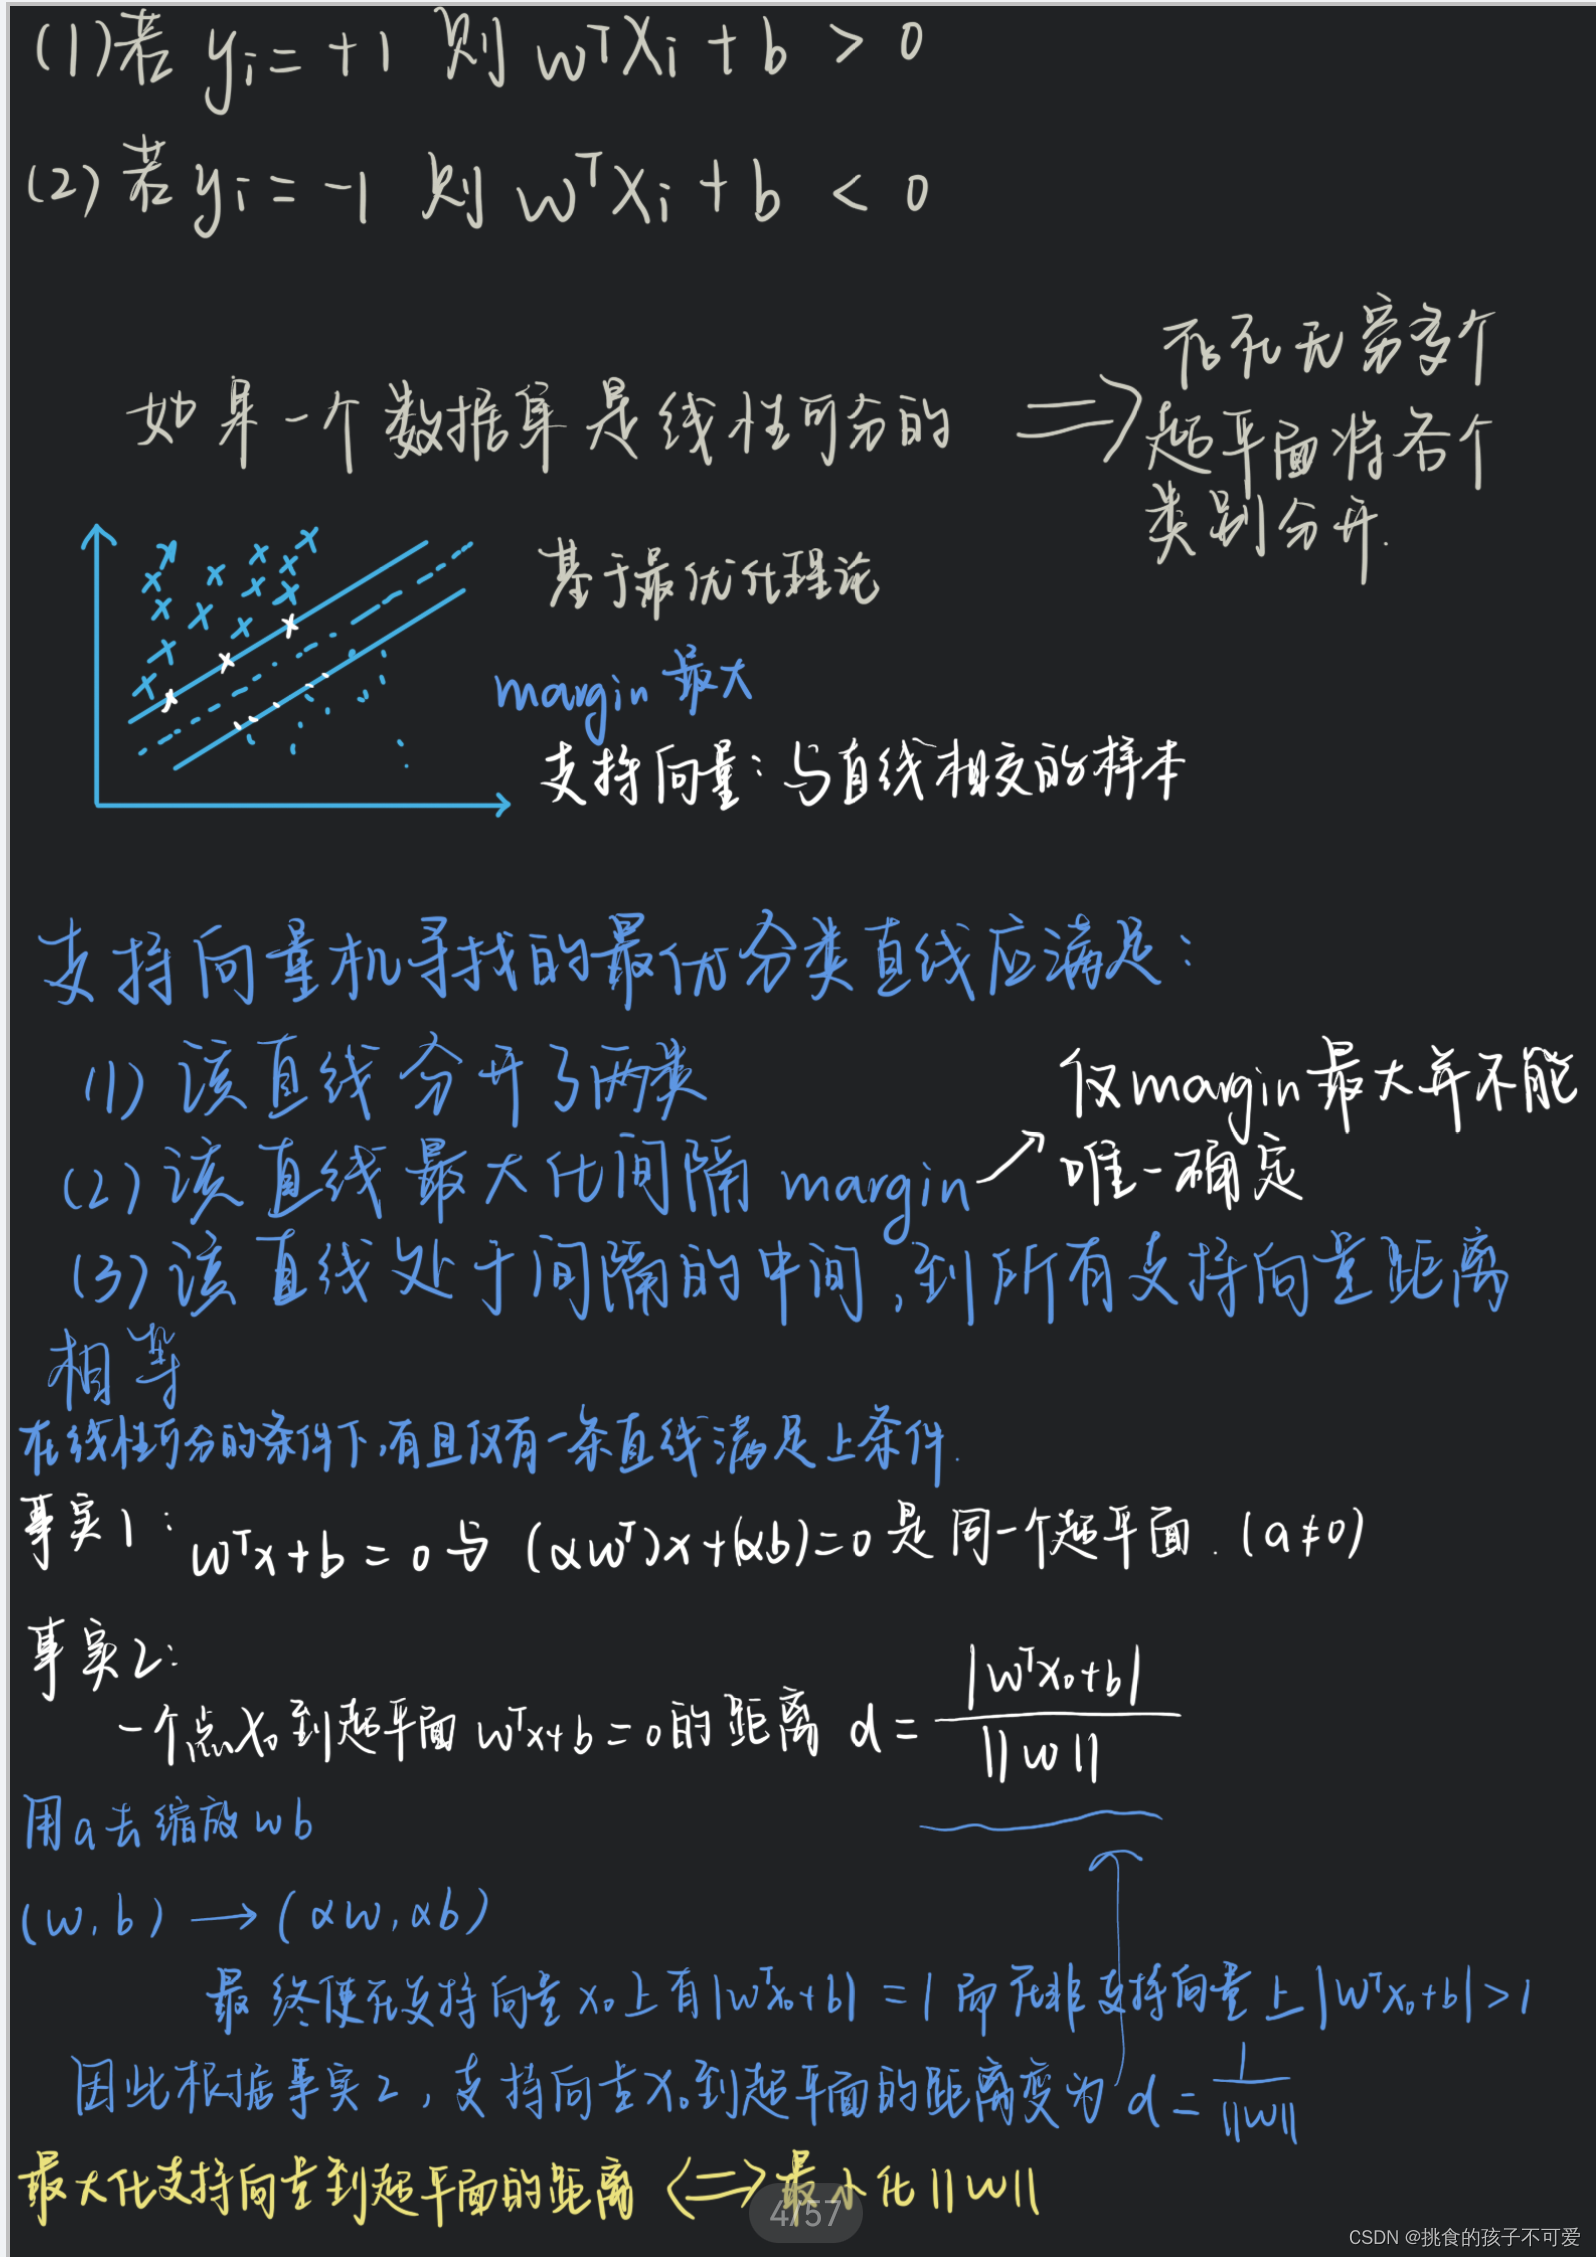 (1)若 yi=+1 则 wᵀXi+b > 0
(2)若 yi=-1 则 wᵀXi+b < 0
如果一个数据集是线性可分的 ⇒ 存在无穷多个
超平面将各个
类别分开.
基于最优化理论
margin 最大
支持向量:与直线相交的样本
支持向量机寻找的最优分类直线应满足:
(1)该直线分开了两类
(2)该直线最大化间隔 margin ↗ 仅margin最大并不能
唯一确定
(3)该直线处于间隔的中间,到所有支持向量距离
相等
在线性可分的条件下,有且仅有一条直线满足上条件.
事实1: wᵀx+b=0与(αwᵀ)x+(αb)=0是同一个超平面.(a≠0)
事实2:
一个点x₀到超平面wᵀx+b=0的距离 d= |wᵀx₀+b| / ||w||
用a去缩放wb
(w,b) → (αw,αb)
最终使在支持向量x₀上有|wᵀx₀+b|=1而在非支持向量上|wᵀx₀+b|>1
因此根据事实2,支持向量x₀到超平面的距离变为 d= 1/||w||
最大化支持向量到超平面的距离 <=> 最小化||w||
4/57
CSDN @挑食的孩子不可爱